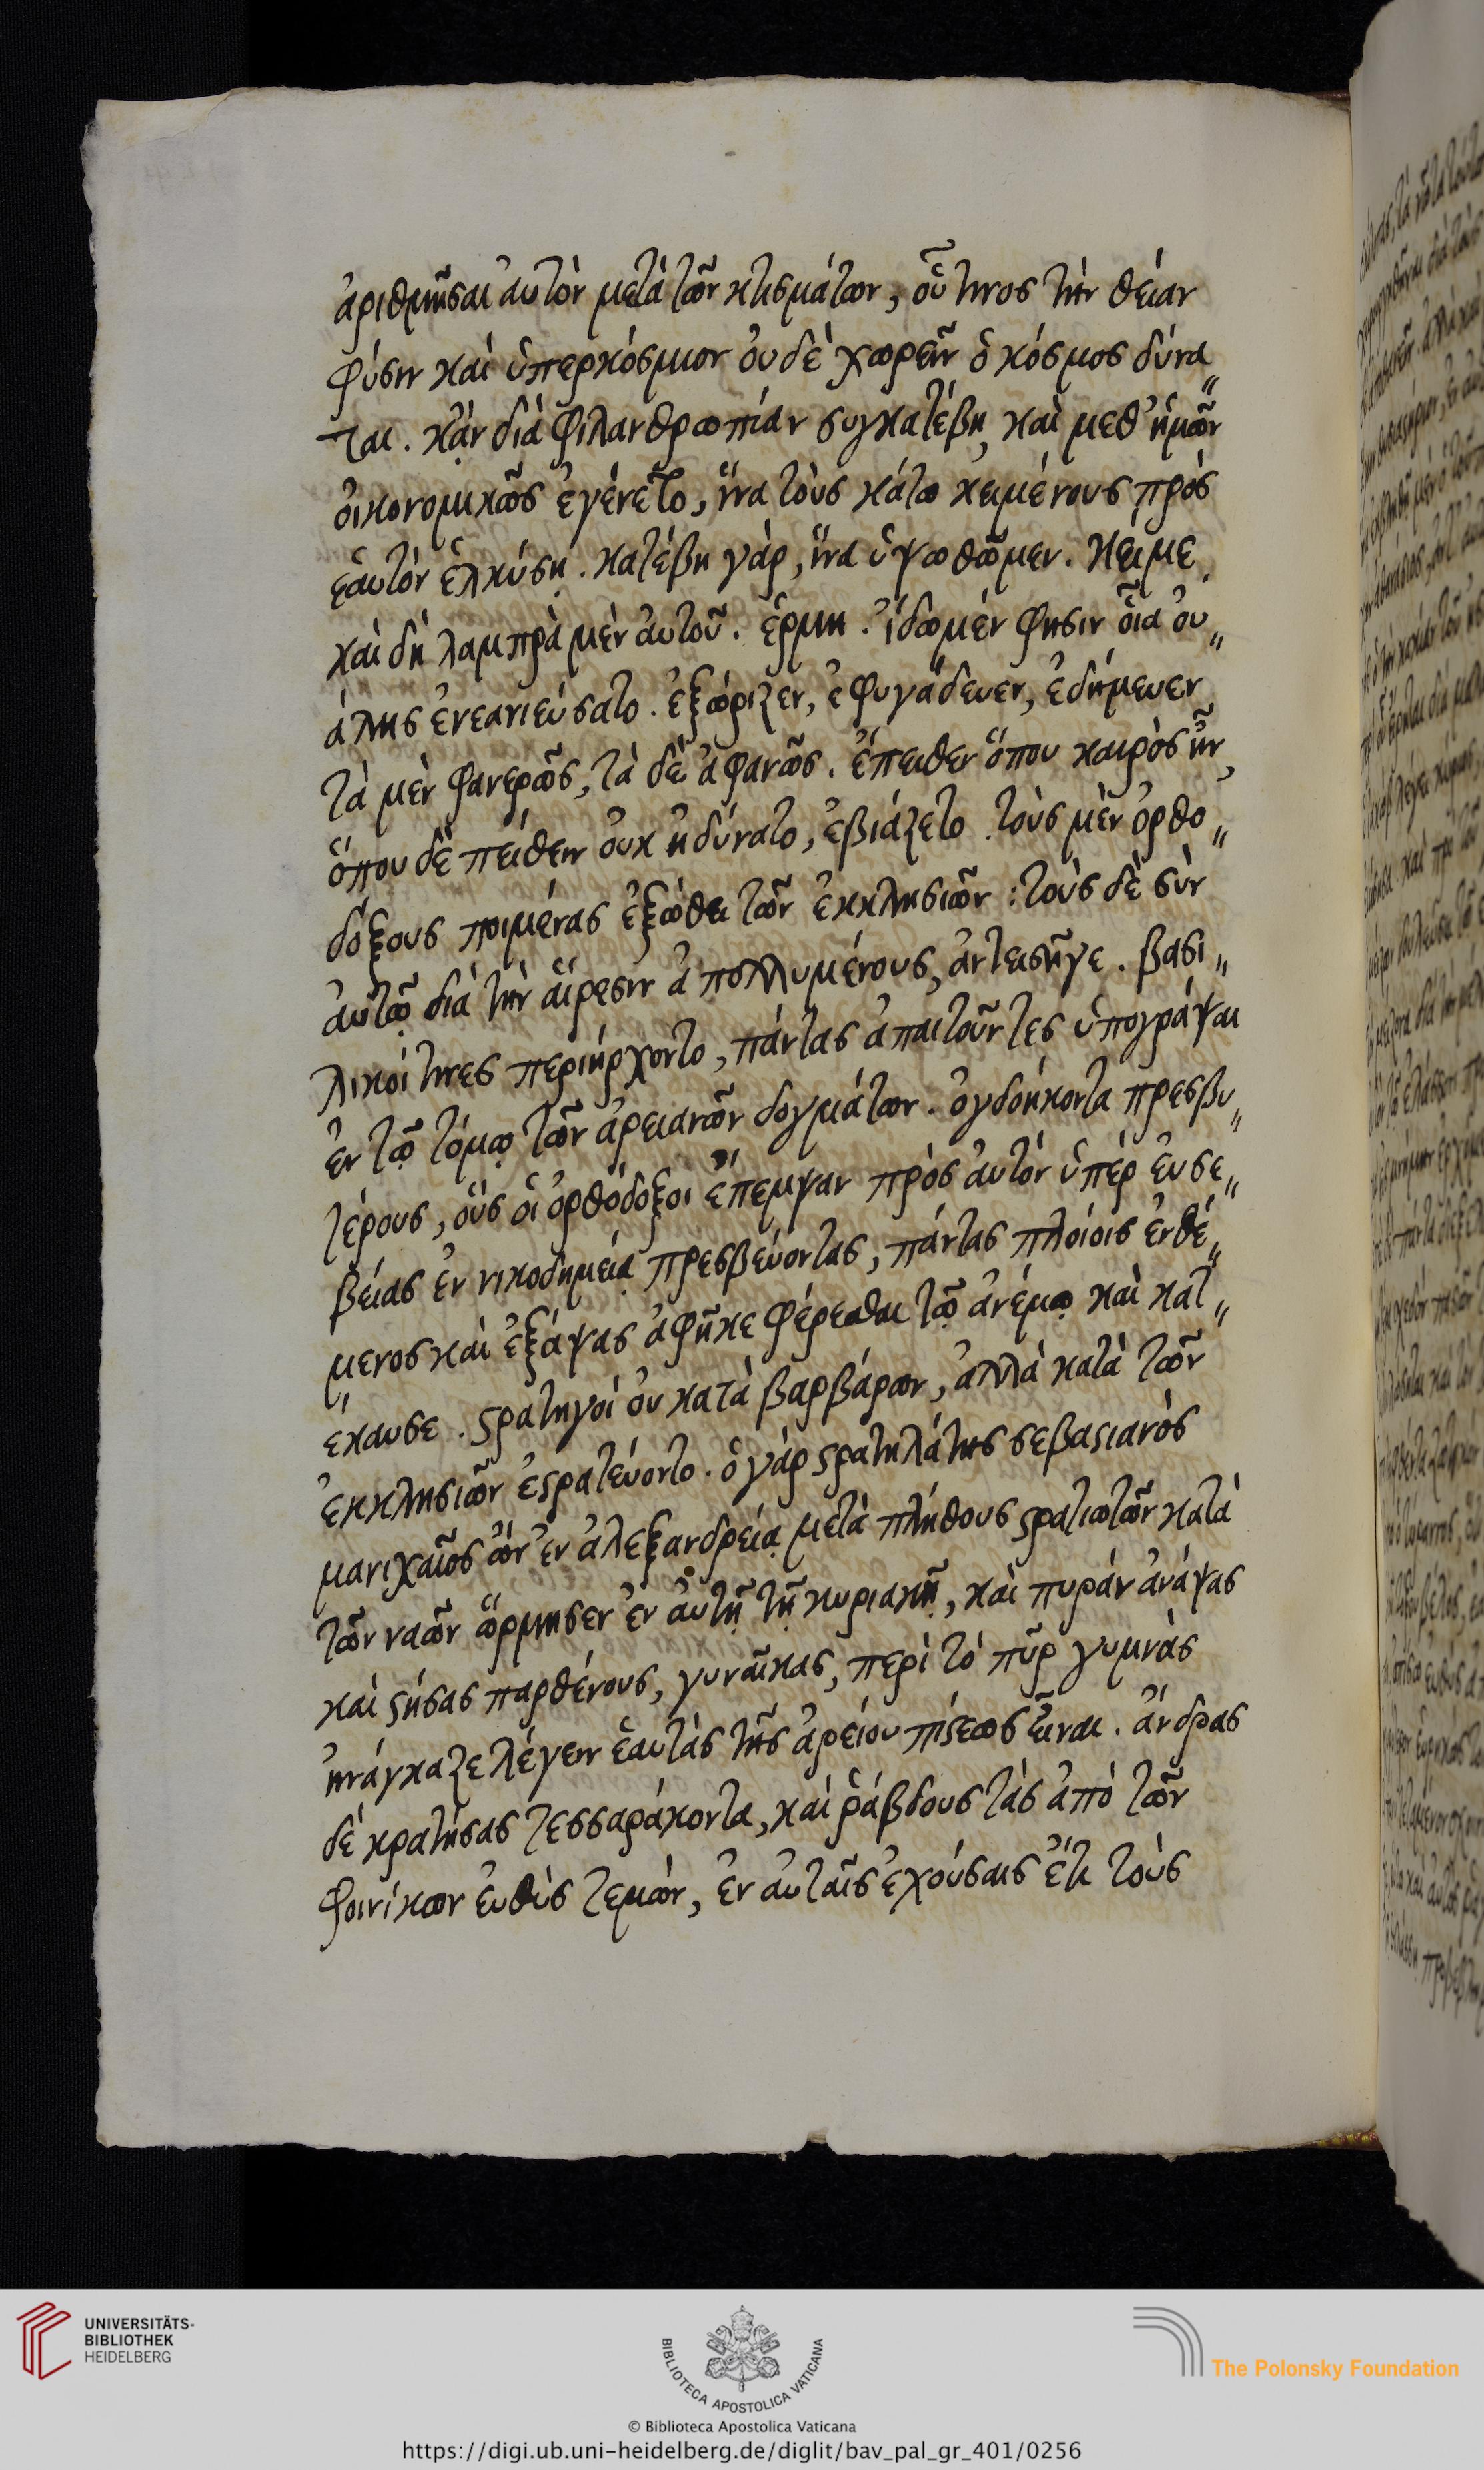 ἀριθμῆσαι ἀυτὸν μετὰ τῶν κτισμάτων, οὗ τινος τὴν θείαν
φύσιν καὶ ὑπερκόσμιον ὀυδὲ χωρεῖν ὁ κόσμος δύνα
ται. κἂν διὰ φιλανθρωπίαν συγκατέβη, καὶ μεθ' ἡμῶν
ὀικονομικῶς ἐγένετο, ἵνα τοὺς κάτω κειμένους πρὸς
ἑαυτὸν ἑλκύσῃ. κατέβη γὰρ, ἵνα ὑψωθῶμεν. Κείμε
καὶ δὴ λαμπρὰ μὲν ἀυτοῦ. ἑρμη. ἴδωμέν φησιν ὅια ὀυ„
άλης ἐνεανιεύσατο. ἐξώριζεν, ἐφυγάδευεν, ἐδήμευεν
τὰ μὲν φανερῶς, τὰ δὲ ἀφανῶς. ἔπειθεν ὅπου καιρὸς ἦν,
ὅπου δὲ πείθειν ὀυκ ἠδύνατο, ἐβιάζετο. τοὺς μὲν ὀρθο„
δόξους ποιμένας ἐξώθει τῶν ἐκκλησιῶν: τοὺς δὲ σὺν
ἀυτῷ διὰ τὴν ἅιρεσιν ἀπολλυμένους, ἀντεισῆγε. βασι„
λικοί τινες περιήρχοντο, πάντας ἀπαιτοῦντες ὑπογράψαι
ἐν τῷ τόμῳ τῶν ἀρειανῶν δογμάτων. ὀγδοήκοντα πρεσβυ„
τέρους, ὅυς ὁι ὀρθόδοξοι ἔπεμψαν πρὸς ἀυτὸν ὑπὲρ ἐυσε„
βείας ἐν νικοδημείᾳ πρεσβεύοντας, πάντας πλοίοις ἐνθέ„
μενος καὶ ἐξάψας ἀφῆκε φέρεσθαι τῷ ἀνέμῳ καὶ κατ„
έκαυσε. ϛρατηγοὶ ὀυ κατὰ βαρβάρων, ἀλλὰ κατὰ τῶν
ἐκκλησιῶν ἐϛρατεύοντο. ὁ γὰρ ϛρατηλάτης σεβαϛιανὸς
μανιχαῖος ὢν ἐν ἀλεξανδρείᾳ μετὰ πλήθους ϛρατιωτῶν κατὰ
τῶν ναῶν ὥρμησεν ἐν ἀυτῇ τῇ κυριακῇ, καὶ πυρὰν ἀνάψας
καὶ ϛήσας παρθένους, γυναῖκας, περὶ τὸ πῦρ γυμνὰς
ἠνάγκαζε λέγειν ἑαυτὰς τῆς ἀρείου πίϛεως εἶναι. ἄνδρας
δὲ κρατήσας τεσσαράκοντα, καὶ ῥάβδους τὰς ἀπὸ τῶν
φοινίκων ἐυθὺς τεμὼν, ἐν ἀυταῖς ἐχούσαις ἔτι τοὺς
UNIVERSITÄTS-
BIBLIOTHEK
HEIDELBERG
BIBLIOTECA APOSTOLICA VATICANA
The Polonsky Foundation
© Biblioteca Apostolica Vaticana
https://digi.ub.uni-heidelberg.de/diglit/bav_pal_gr_401/0256